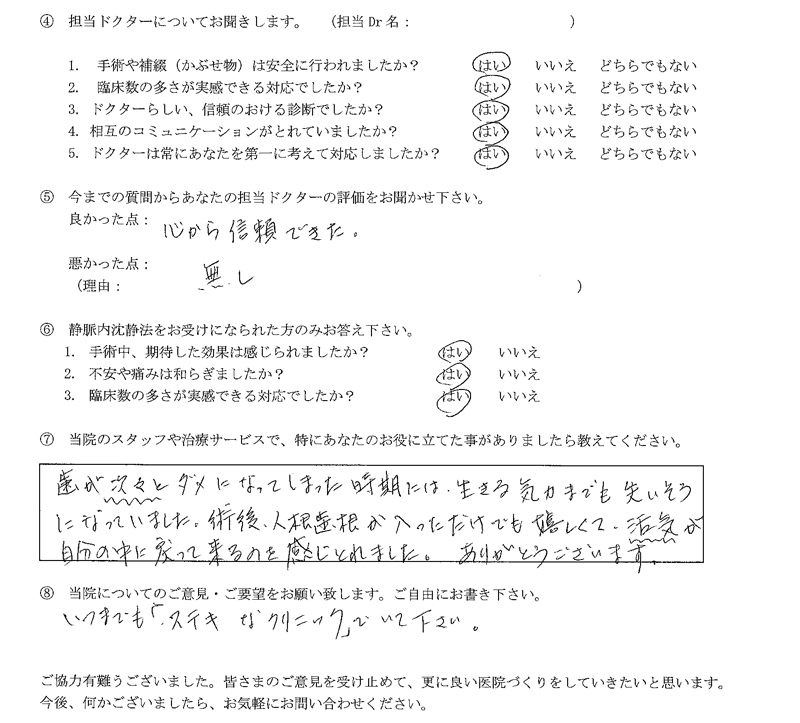 ④ 担当ドクターについてお聞きします。 （担当Dr名： ）
1. 手術や補綴（かぶせ物）は安全に行われましたか？ はい いいえ どちらでもない
2. 臨床数の多さが実感できる対応でしたか？ はい いいえ どちらでもない
3. ドクターらしい、信頼のおける診断でしたか？ はい いいえ どちらでもない
4. 相互のコミュニケーションがとれていましたか？ はい いいえ どちらでもない
5. ドクターは常にあなたを第一に考えて対応しましたか？ はい いいえ どちらでもない
⑤ 今までの質問からあなたの担当ドクターの評価をお聞かせ下さい。
良かった点： 心から信頼できた。
悪かった点： 無し
（理由： ）
⑥ 静脈内沈静法をお受けになられた方のみお答え下さい。
1. 手術中、期待した効果は感じられましたか？ はい いいえ
2. 不安や痛みは和らぎましたか？ はい いいえ
3. 臨床数の多さが実感できる対応でしたか？ はい いいえ
⑦ 当院のスタッフや治療サービスで、特にあなたのお役に立てた事がありましたら教えてください。
歯が次々とダメになってしまった時期には、生きる気力までも失いそう
になっていました。術後、人根歯根が入っただけでも嬉しくて、活気が
自分の中に戻って来るのを感じとれました。 ありがとうございます。
⑧ 当院についてのご意見・ご要望をお願い致します。ご自由にお書き下さい。
いつまでも「ステキなクリニック」でいて下さい。
ご協力有難うございました。皆さまのご意見を受け止めて、更に良い医院づくりをしていきたいと思います。
今後、何かございましたら、お気軽にお問い合わせください。